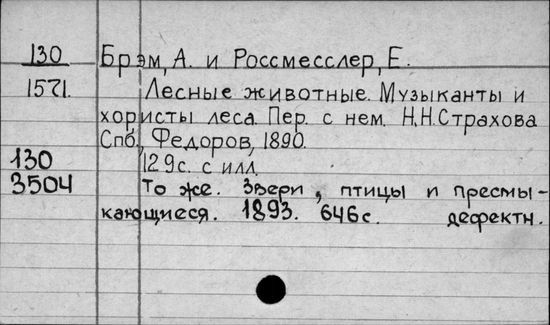 130 Брэм, А. и Россмесслер, Е.
1571. Лесные животные. Музыканты и
хористы леса. Пер. с нем. Н.Н.Страхова
Спб., Федоров, 1890.
130 129с. с илл.
3504 То же. Звери, птицы и пресмы-
кающиеся. 1893. 646с. дефектн.